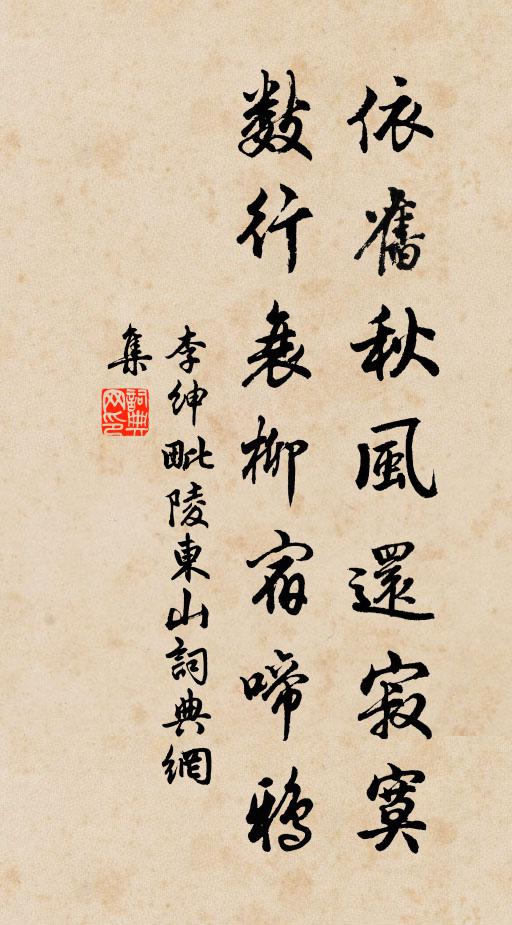 依舊秋風還寂寞
數行衰柳宿啼鴉
李紳毗陵東山詞典網
集
詞典網印